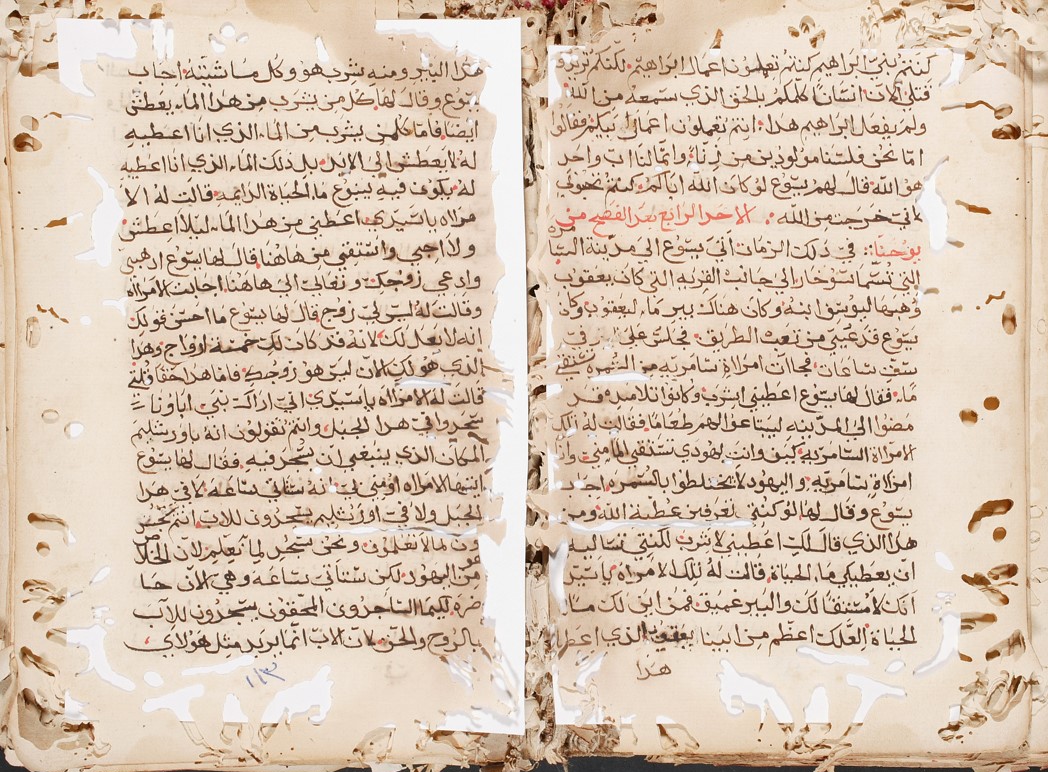 كنتم بني ابراهيم كنتم تعملون اعمال ابراهيم. لكنكم تريدو
قتلي الان انسانًا كلمكم بالحق الذي سمعه من الله
ولم يفعل ابراهيم هذا: انتم تعملون اعمال ابيكم فقالوا
اما نحن فلسنا مولودين من زنا. وانما لنا اب واحد
هو الله قال لهم يسوع لو كان الله اباكم. كنتم تحبوني
لاني خرجت من الله. الاحد الرابع بعد الفصح من
يوحنا: في ذلك الزمان اتى يسوع الى مدينة السا
التي تسما سوخار الى جانب القريه التي كان يعقوب
وهبها ليوسف ابنه وكان هناك بير ماء ليعقوب وكا
يسوع قد عيي من تعب الطريق. فجلس على البير في
ست ساعات. فجاات امراة سامريه من السمره تستقي
ما. فقال لها يسوع اعطيني اشرب وكانوا تلاميذه قد
مضوا الى المدينه ليبتاعوا لهم طعامًا. فقالت له تلك
الامراة السامريه كيف وانت يهودي تستقي الما مني وانا
امراة سامريه. واليهود لا يختلطوا بالسمره اجاب
يسوع وقال لها لو كنتي تعرفين عطية الله ومن
هذا الذي قال لك اعطيني لاشرب لكنتي تساليه
ان يعطيكي ماء الحياة. قالت له تلك الامراه يا سيد
انك لا مستقا لك والبير عميق. فمن اين لك ماء
الحياة العلك اعظم من ابينا يعقوب الذي اعطا
هذا
هذا البير ومنه شرب هو وكل ماشيته. اجاب
يسوع وقال لها كل من يشرب من هذا الماء يعطش
ايضا فاما كلمن يشرب من الماء الذي انا اعطيه
له لا يعطش الى الابد. بل ذلك الماء الذي انا اعطيه
له يكون فيه ينبوع ما الحياة الدايمه. قالت له الا
مراه يا سيدي اعطني من هذا الماء ليلا اعطش.
ولا اجي واستقي من هاهنا. قال لها يسوع اذهبي
وادعي زوجك وتعالي الى هاهنا. اجابت الامراه
وقالت له ليس لي زوج قال لها يسوع ما احسن قولك
انه لا بعل لك لانه قد كان لك خمسة ازواج وهذا
الذي هو لك الان ليس هو زوجك. فاما هذا حقا قلتي
قالت له الامراه يا سيدي اني اراك نبي. اباونا
سجدوا في هذا الجبل. وانتم تقولون انه باورشليم
المكان الذي ينبغي ان يسجد فيه. فقال لها يسوع
ايتها الامراه امني بي انه ستاتي ساعه لا في هذا
الجبل ولا في اورشليم يسجدون للاب. انتم تسجد
ون لما لا تعلمون. ونحن نسجد لما نعلم لان الخلاص
من اليهود. لكن ستاتي ساعه وهي الان حا
ضره لكيما الساجدون المحقون يسجدون للاب
بالروح والحق. لان الاب انما يريد مثل هولاي
١١٣